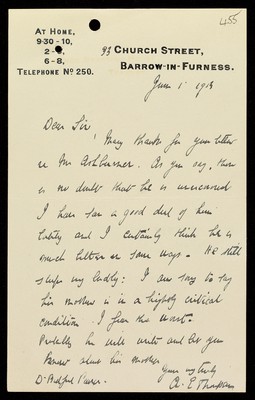 455
AT HOME,
9-30 - 10,
2-
6-8,
TELEPHONE No 250.
93 CHURCH STREET,
BARROW-IN-FURNESS.
June 1 1913
Dear Sir
Many thanks for your letter
re Mr Ashburner. As you say, there
is no doubt that he is
I have seen a good deal of him
lately and I certainly think he is
much better in some ways. He still
sleeps very badly: I am sorry to say
his mother is in a highly critical
condition. I fear the worst.
Probably he will write and let you
know about his mother
Yours very truly
Dr Bedford Pierce.